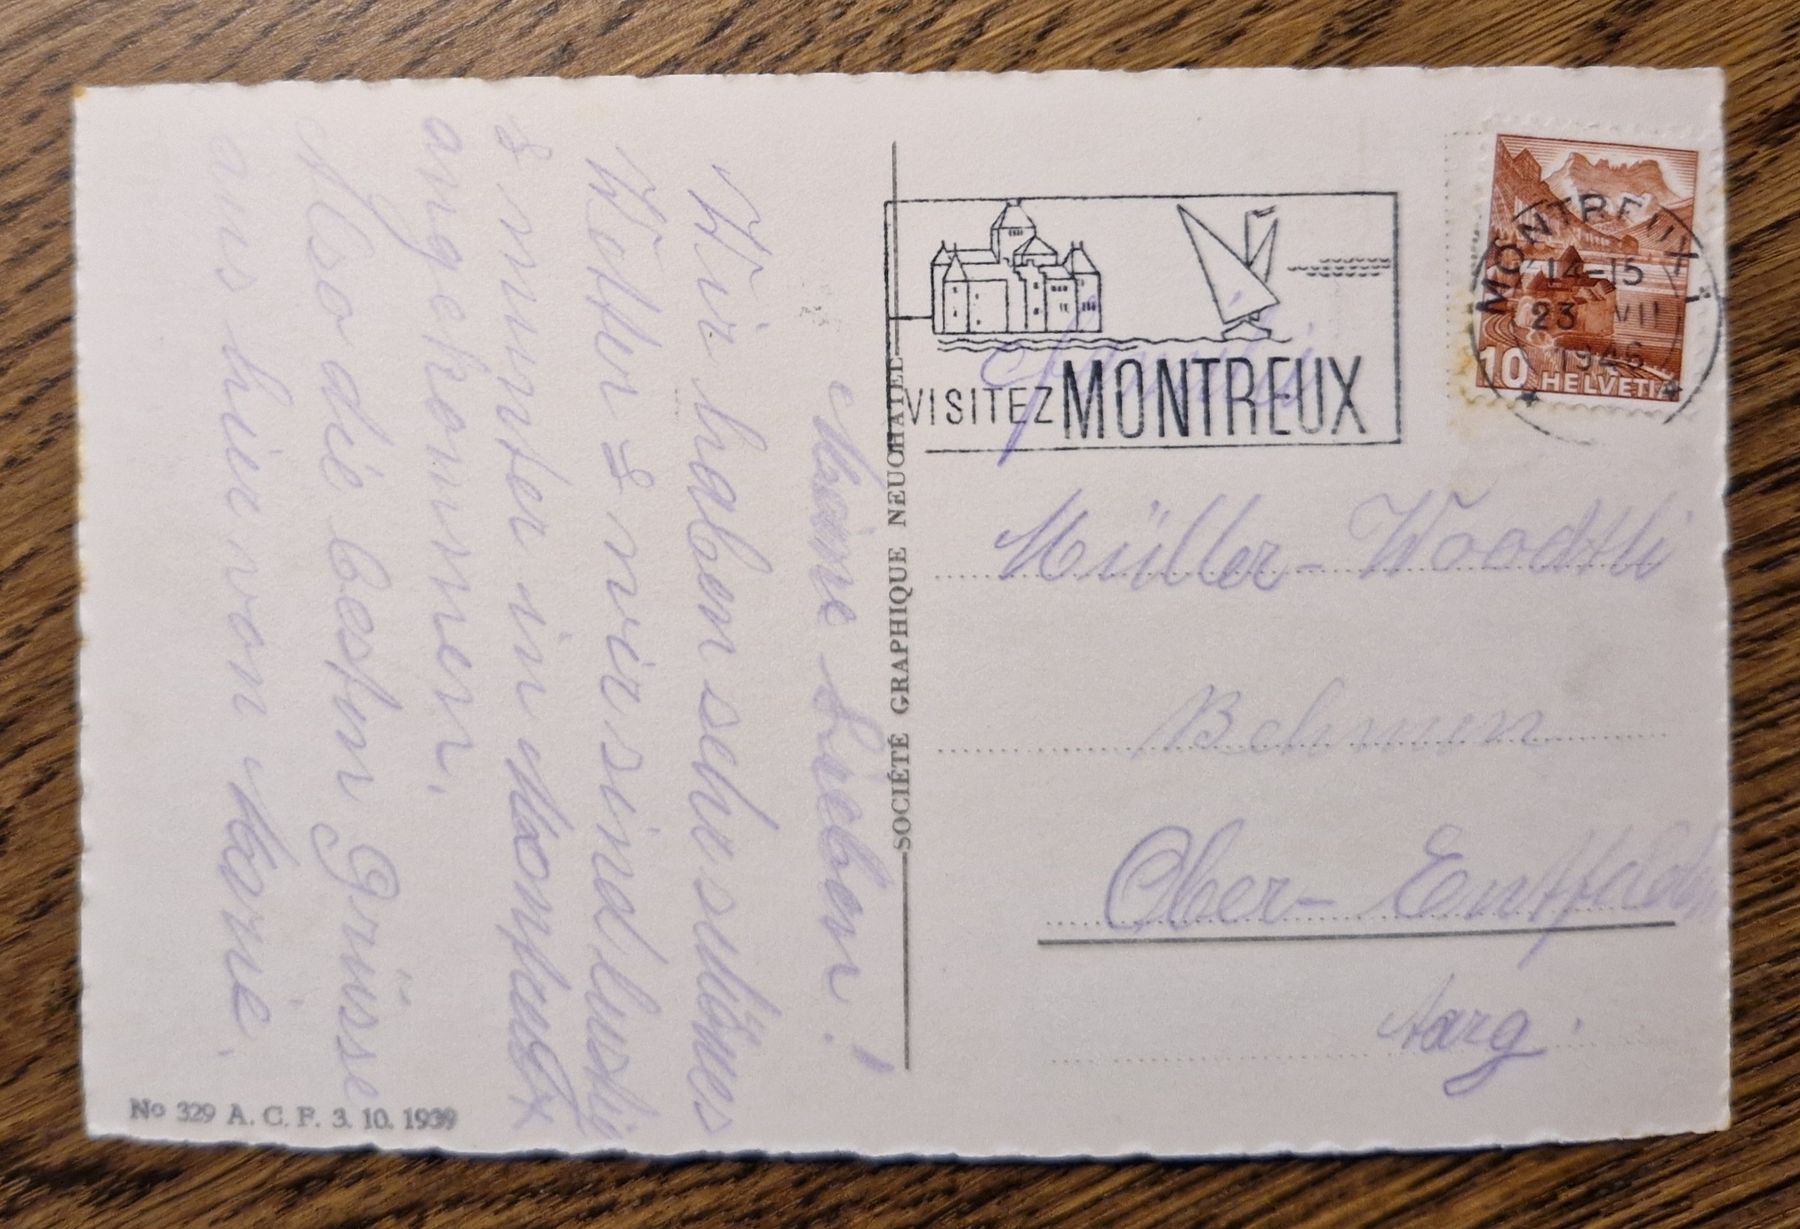 Meine Lieben!
Wir haben sehr schönes
Wetter & wir sind lustig
& munter in Montreux
angekommen.
Also die besten Grüsse
aus hier von Marie.
No 329 A. C. F. 3. 10. 1939
SOCIÉTÉ GRAPHIQUE NEUCHATEL
VISITEZ MONTREUX
MONTREUX 1
14-15
23 VII
1946
10 HELVETIA
Familie
Müller-Woodtli
Ober-Entfelden
Aarg.